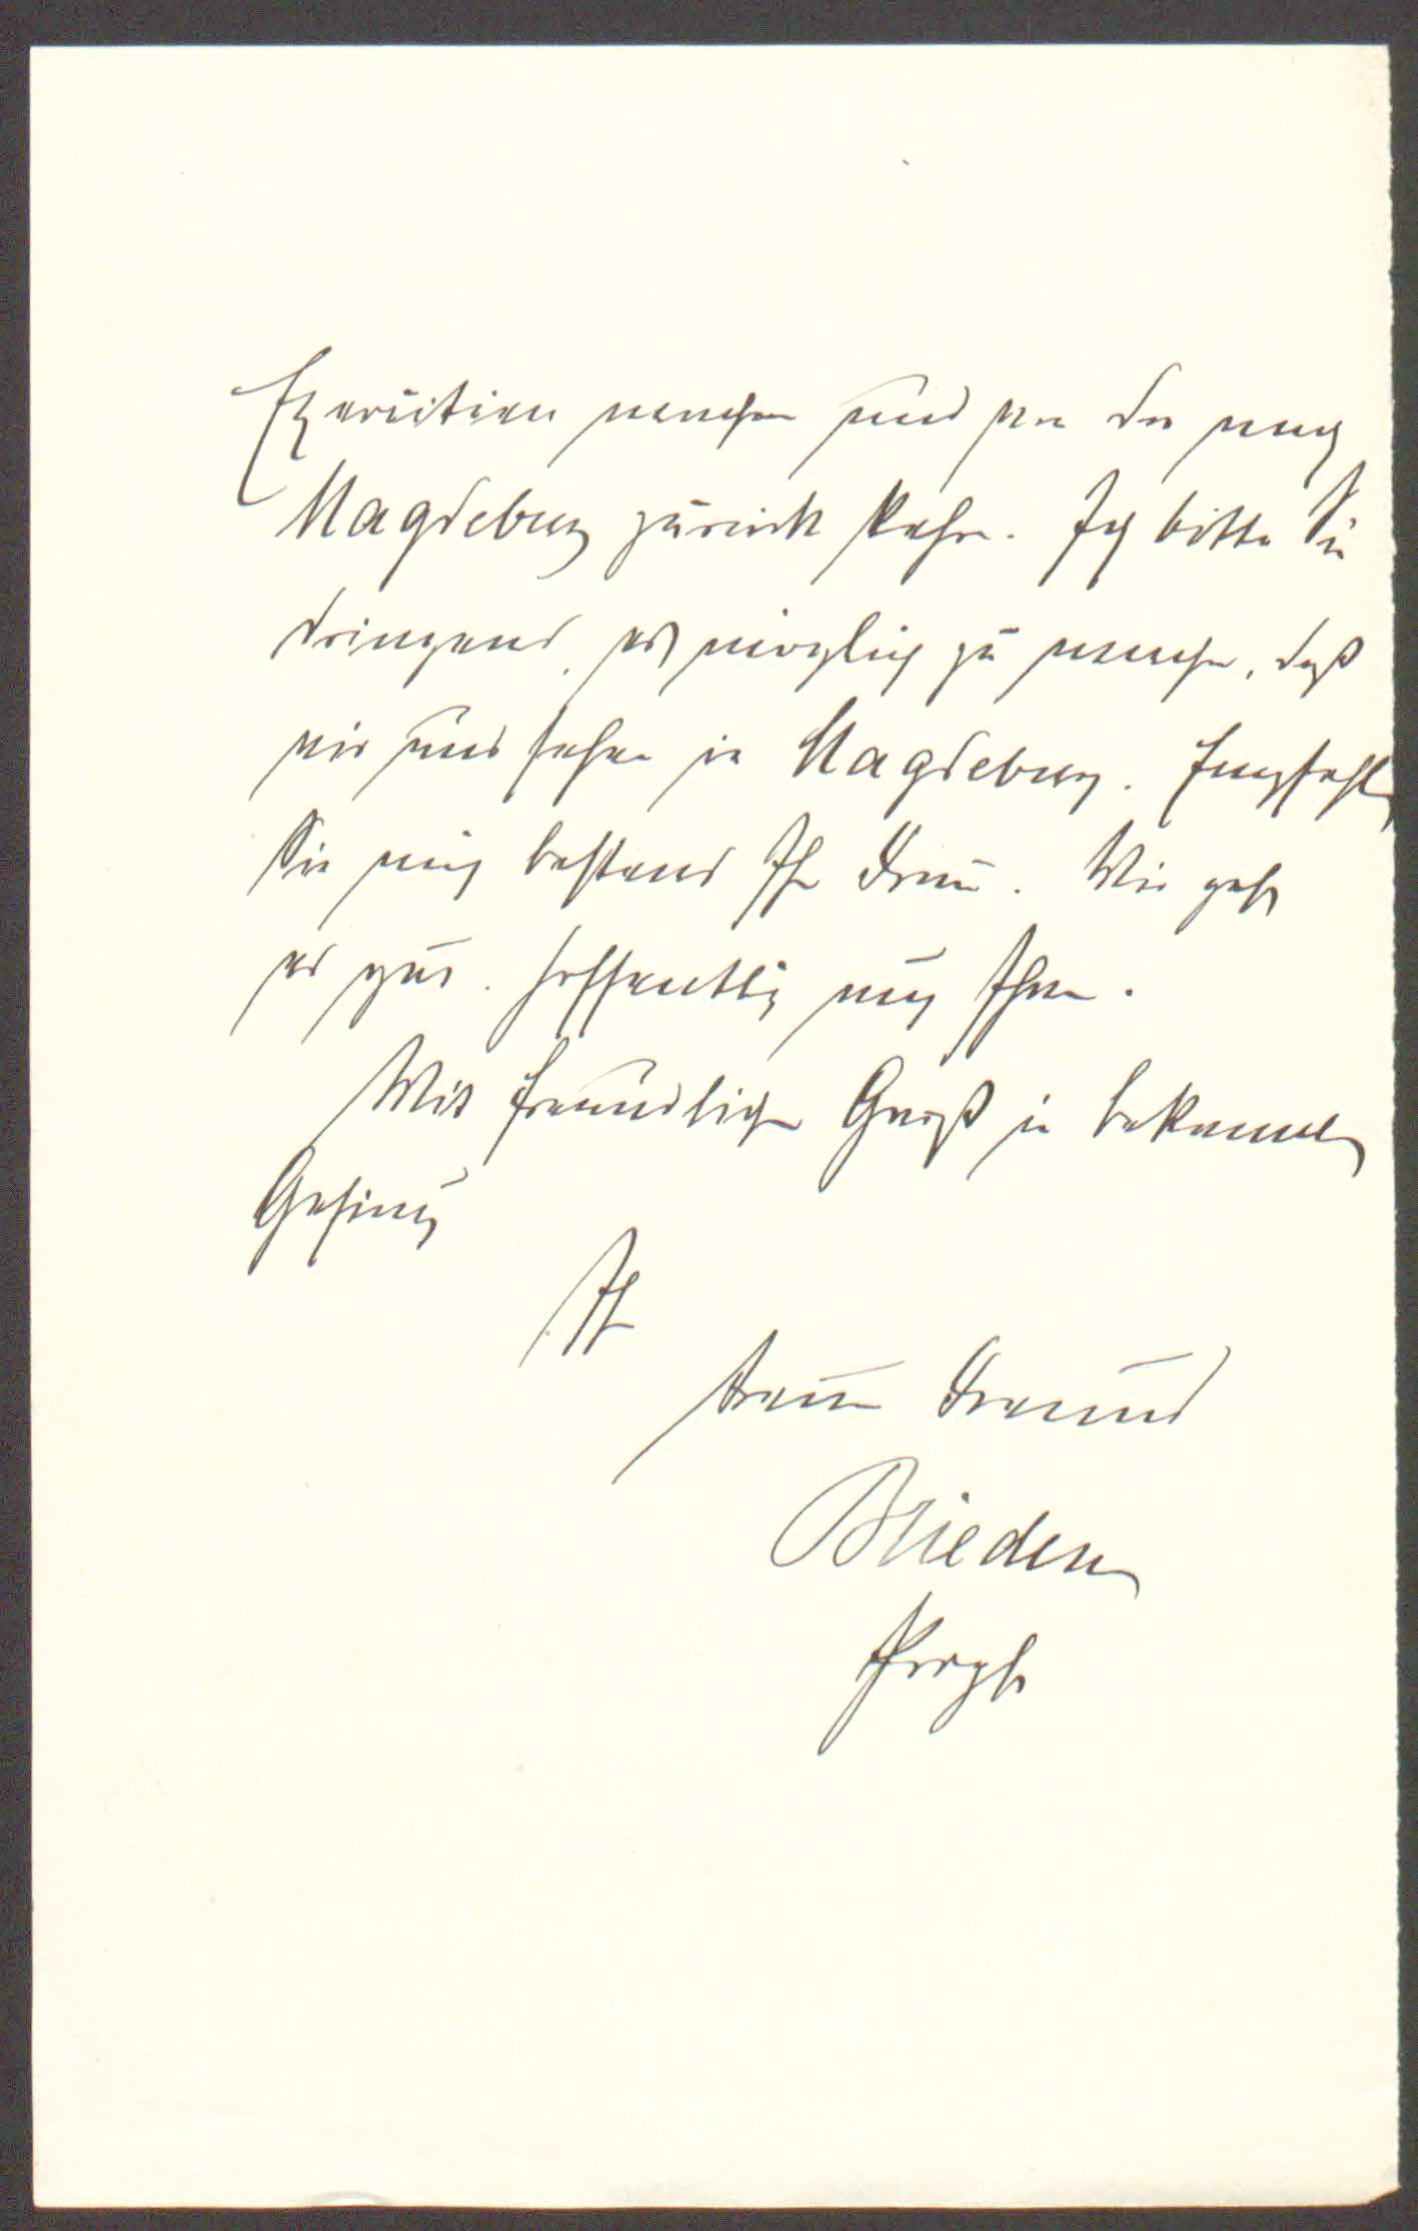 Exercitien machen und von da nach
Magdeburg zurück kehre. Ich bitte Sie
dringend, es möglich zu machen, daß
wir uns sehen in Magdeburg. Empfehlen
Sie mich bestens Ihr Frau. Mir geht
es gut. Hoffentlich auch Ihnen.
Mit freundlichen Gruß in bekannter
Gesinng
Ihr
treuer Freund
Brieden
Propst